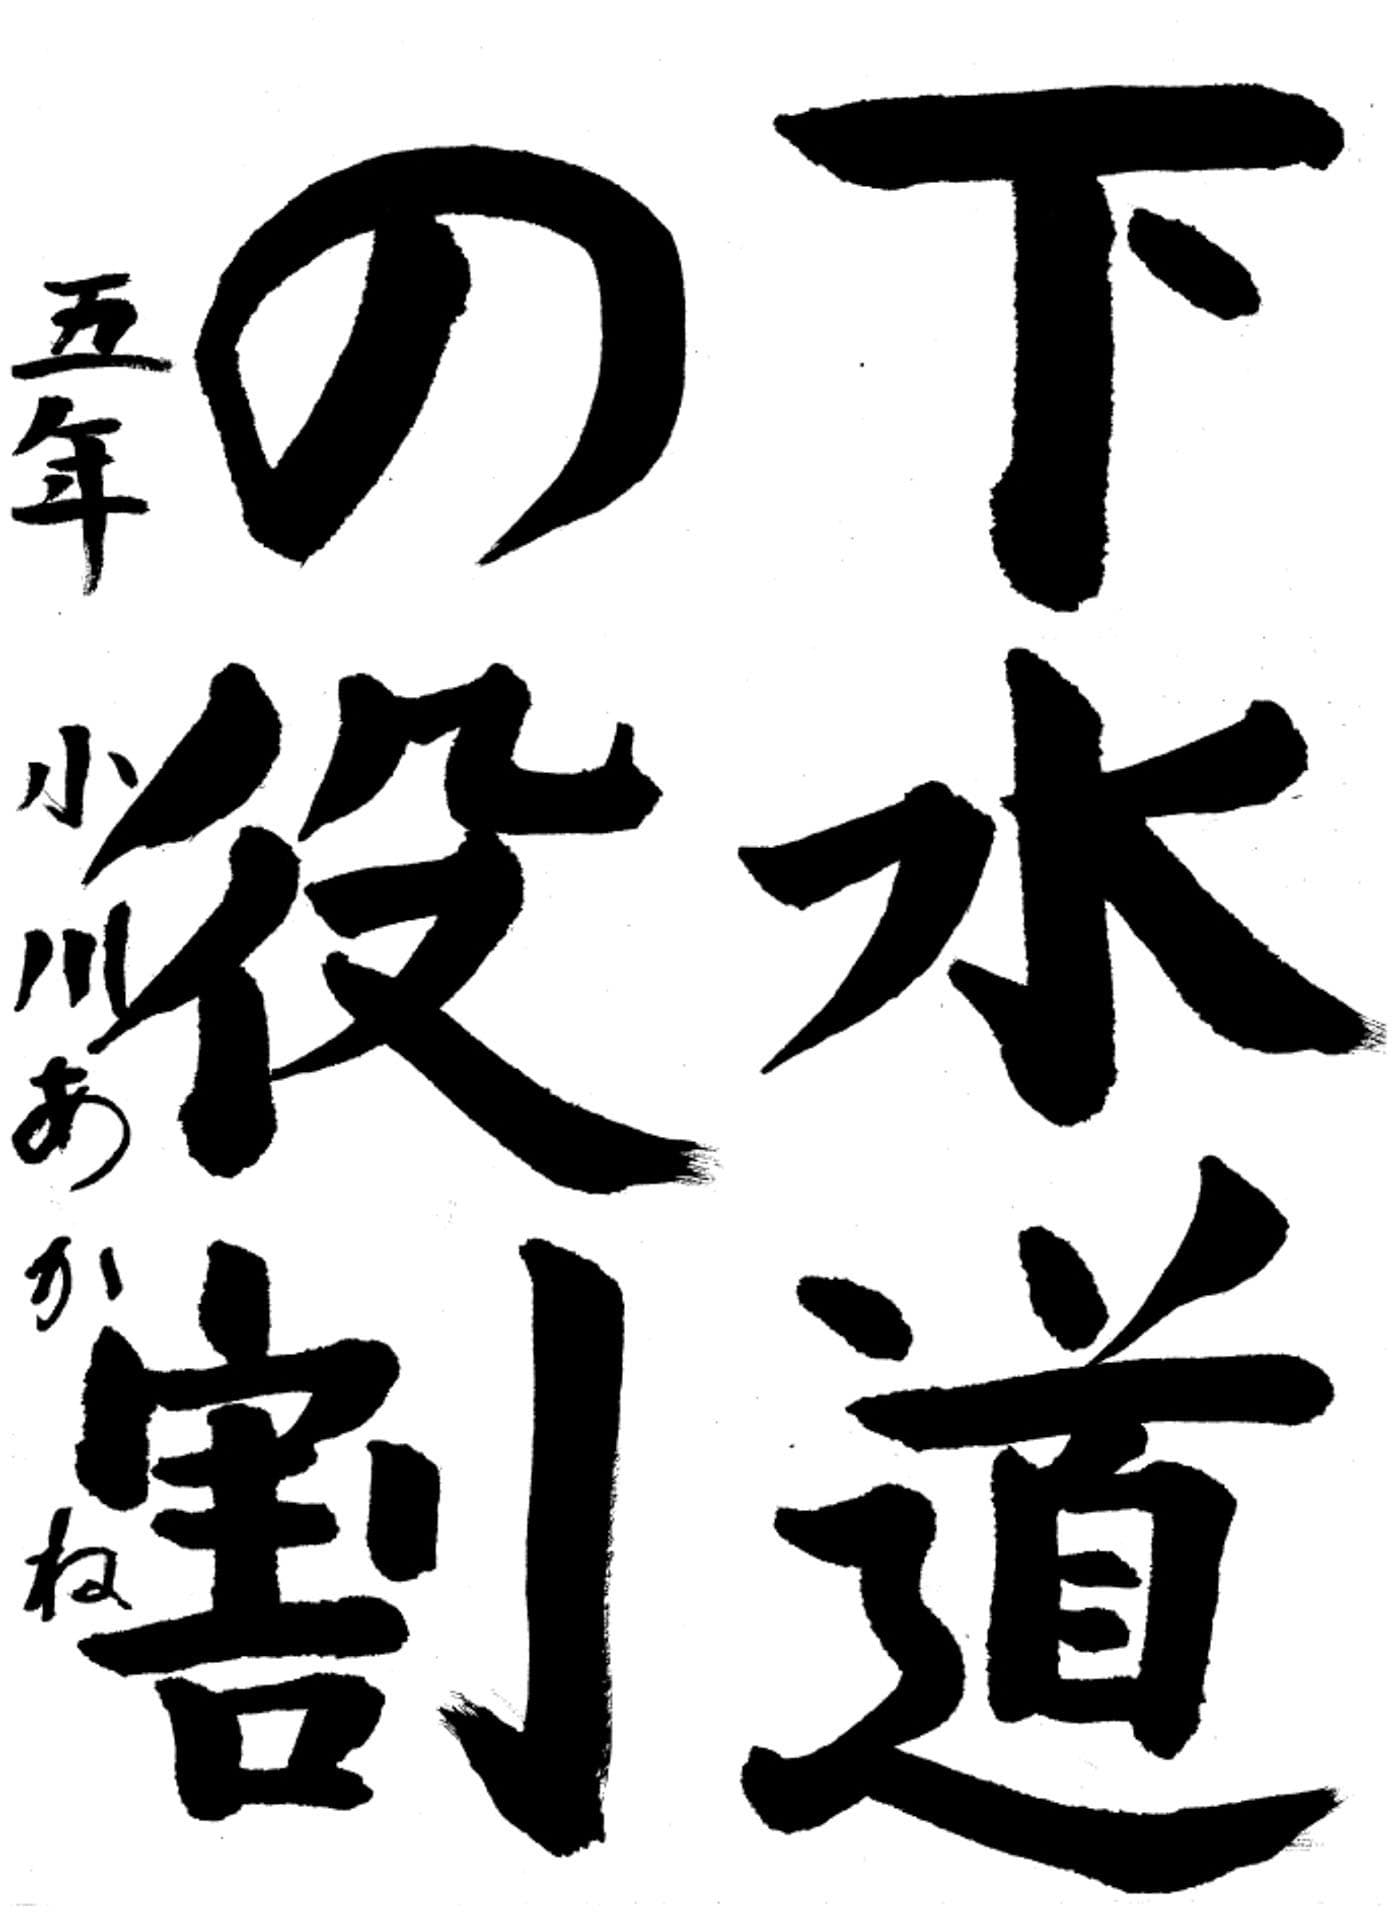 下水道
の役割
五年 小川あかね